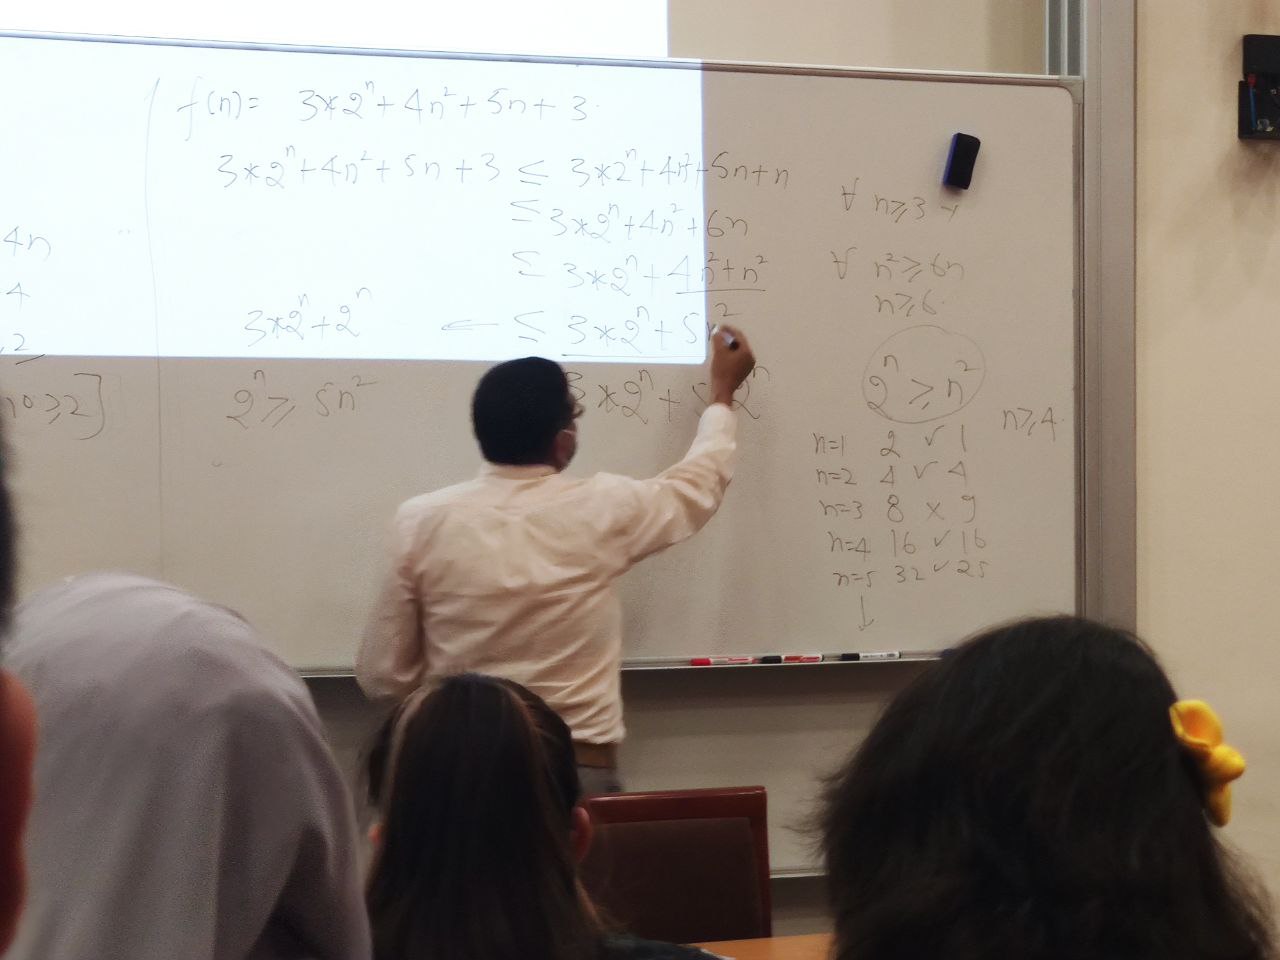 f(n) = 3*2ⁿ + 4n² + 5n + 3
3*2ⁿ + 4n² + 5n + 3 ≤ 3*2ⁿ + 4n² + 5n + n
∀ n ≥ 3
≤ 3*2ⁿ + 4n² + 6n
4n
≤ 3*2ⁿ + 4n² + n²
∀ n² ≥ 6n
4
n ≥ 6
3*2ⁿ + 2ⁿ ← ≤ 3*2ⁿ + 5n²
2
2ⁿ ≥ n²
≥ 2]
2ⁿ ≥ 5n²
3*2ⁿ + 5 2ⁿ
n ≥ 4
n=1 2 ✓ 1
n=2 4 ✓ 4
n=3 8 × 9
n=4 16 ✓ 16
n=5 32 ✓ 25
↓